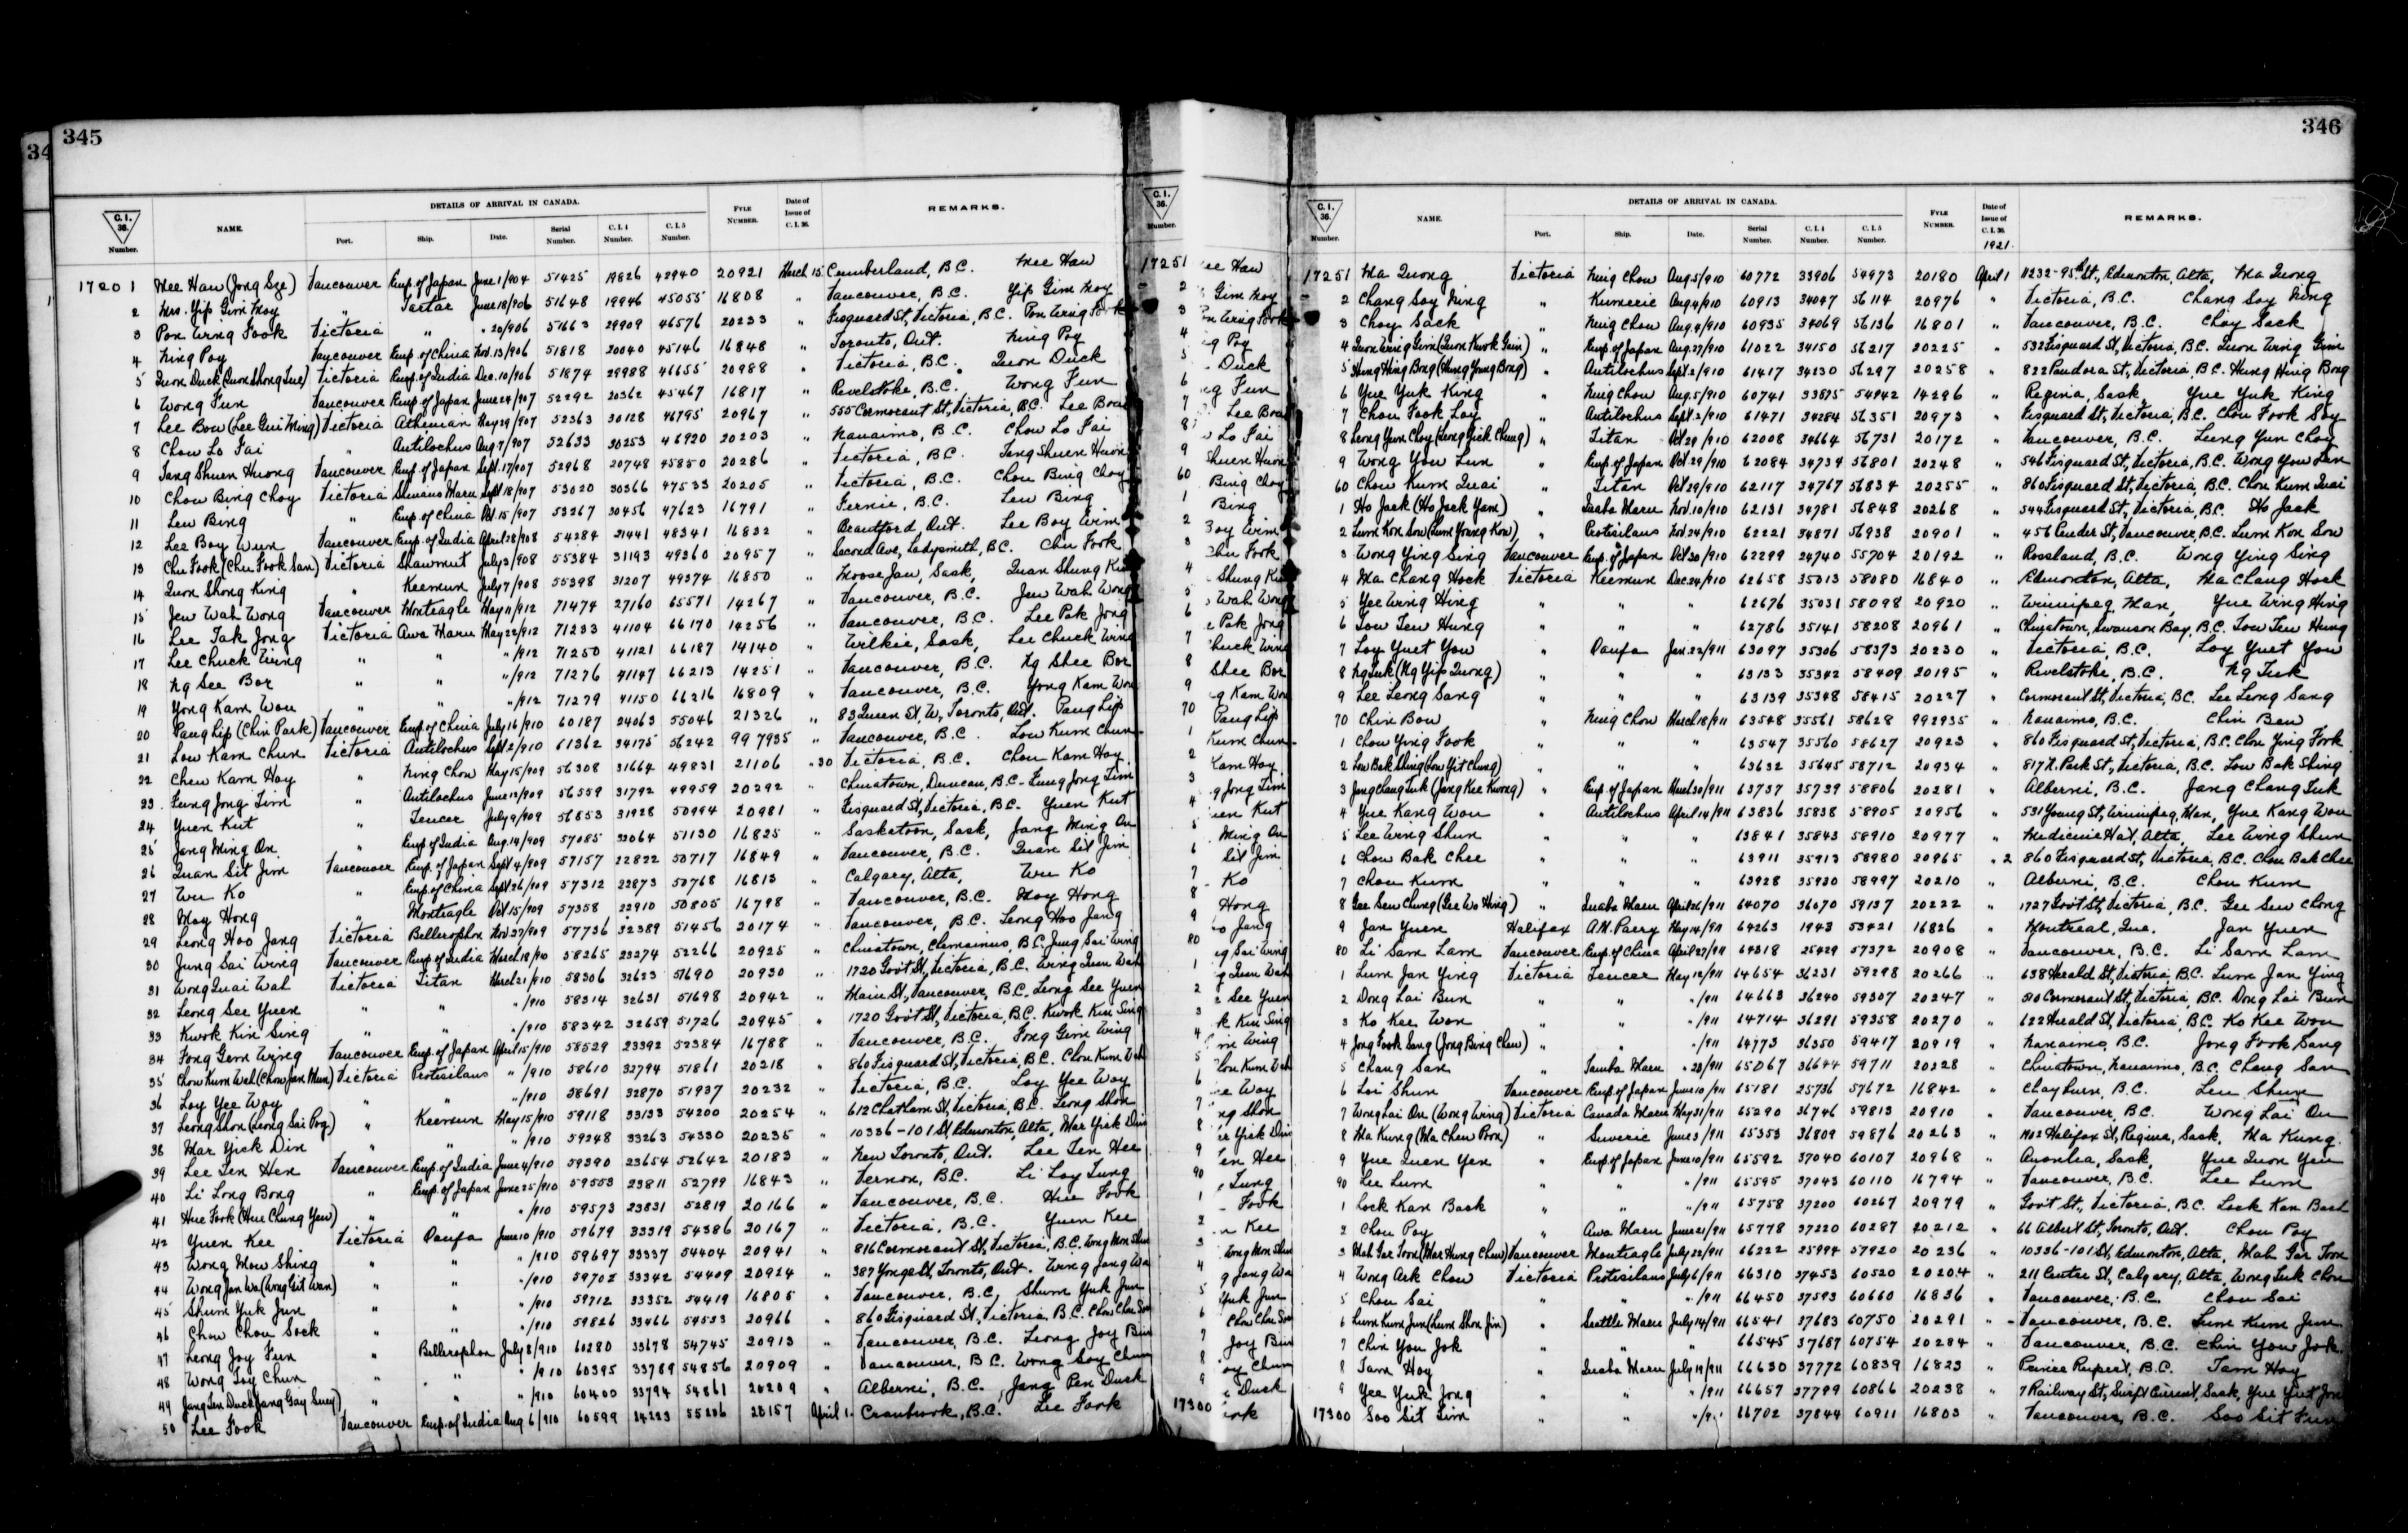 345
DETAILS OF ARRIVAL IN CANADA.
C.I. 36. Number. NAME. Port. Ship. Date. Serial Number. C.I.4 Number. C.I.5 Number. FYLE NUMBER. Date of Issue of C.I.36. REMARKS.
17201 Mee Haw (Jong Sze) Vancouver Emp. of Japan June 1/904 51425 19826 42940 20921 March 15 Cumberland, B.C. Mee Haw
2 Mrs. Yip Gim Moy " Tartar June 18/906 51648 19946 45055 16808 " Vancouver, B.C. Yip Gim Moy
3 Pon Wing Fook Victoria " " 20/906 51663 29909 46576 20233 " Fisguard St, Victoria, B.C. Pon Wing Fook
4 Ning Poy Vancouver Emp. of China Nov. 13/906 51818 20040 45146 16848 " Toronto, Ont. Ning Poy
5 Quon Duck (Quon Shong Lue) Victoria Emp. of India Dec. 10/906 51874 29988 46655 20988 " Victoria, B.C. Quon Duck
6 Wong Fun Vancouver Emp. of Japan June 24/907 52292 20362 45467 16817 " Revelstoke, B.C. Wong Fun
7 Lee Bow (Lee Gui Ming) Victoria Athenian May 29/907 52363 30128 46795 20967 " 555 Cormorant St, Victoria, B.C. Lee Bow
8 Chow Lo Fai " Antilochus Aug. 7/907 52633 30253 46920 20203 " Nanaimo, B.C. Chow Lo Fai
9 Tang Shuen Huong Vancouver Emp. of Japan Sept. 17/907 52968 20748 45850 20286 " Victoria, B.C. Tang Shuen Huon
10 Chow Bing Choy Victoria Shinano Maru Sept 18/907 53020 30366 47533 20205 " Victoria, B.C. Chow Bing Choy
11 Lew Bing " Emp. of China Oct. 15/907 53267 30456 47623 16791 " Fernie, B.C. Lew Bing
12 Lee Boy Wun Vancouver Emp. of India April 28/908 54284 21441 48341 16832 " Brantford, Ont. Lee Boy Wim
13 Chu Fook (Chu Fook San) Victoria Shawmut July 3/908 55384 31193 49360 20957 " Second Ave, Ladysmith, B.C. Chu Fook
14 Quon Shong King " Keemun July 7/908 55398 31207 49374 16850 " Moose Jaw, Sask, Quan Shung Kin
15 Jew Wah Wong Vancouver Monteagle May 11/912 71474 27160 65571 14267 " Vancouver, B.C. Jew Wah Wong
16 Lee Tak Jong Victoria Awa Maru May 22/912 71233 41104 66170 14256 " Vancouver, B.C. Lee Pak Jong
17 Lee Chuck Wing " " "/912 71250 41121 66187 14140 " Wilkie, Sask, Lee Chuck Wing
18 Ng See Bor " " "/912 71276 41147 66213 14251 " Vancouver, B.C. Ng Shee Bor
19 Yong Kam Wou " " "/912 71279 41150 66216 16809 " Vancouver, B.C. Yong Kam Wou
20 Pang Lip (Chin Park) Vancouver Emp. of China July 16/910 60187 24063 55046 21326 " 83 Queen St, W, Toronto, Ont. Pang Lip
21 Low Kam Chun Victoria Antilochus Sept. 2/910 61362 34175 56242 997935 " Vancouver, B.C. Low Kum Chun
22 Chew Kam Hoy " Ning Chow May 15/909 56308 31664 49831 21106 " 30 Victoria, B.C. Chow Kam Hoy
23 Fung Jong Lim " Antilochus June 12/909 56559 31792 49959 20292 " Chinatown, Duncan, B.C. Fung Jong Lim
24 Yuen Kut " Teucer July 9/909 56853 31928 50994 20981 " Fisguard St, Victoria, B.C. Yuen Kut
25 Jang Ming On " Emp. of India Aug. 14/909 57085 32064 51130 16825 " Saskatoon, Sask, Jang Ming On
26 Quan Sit Jim Vancouver Emp. of Japan Sept 4/909 57157 22822 50717 16849 " Vancouver, B.C. Quan Sit Jim
27 Wu Ko " Emp. of China Sept 26/909 57312 22873 50768 16813 " Calgary, Alta, Wu Ko
28 Moy Hong " Monteagle Oct 15/909 57358 22910 50805 16798 " Vancouver, B.C. Moy Hong
29 Leong Hoo Jang Victoria Bellerophon Nov 27/909 57736 32389 51456 20174 " Vancouver, B.C. Leong Hoo Jang
30 Jung Sai Wing Vancouver Emp. of India March 18/910 58265 23274 52266 20925 " Chinatown, Chemainus, B.C. Jung Sai Wing
31 Wong Quai Wah Victoria Titan March 21/910 58306 32623 51690 20930 " 1720 Gov't St, Victoria, B.C. Wing Quan Wah
32 Leong See Yuen " " "/910 58314 32631 51698 20942 " Main St, Vancouver, B.C. Leong See Yuen
33 Kwok Kin Sing " " "/910 58342 32659 51726 20945 " 1720 Gov't St, Victoria, B.C. Kwok Kin Sing
34 Fong Gem Wing Vancouver Emp. of Japan April 15/910 58529 23392 52384 16788 " Vancouver, B.C. Fong Gim Wing
35 Chow Kum Wah (Chow Jan Mun) Victoria Protisilaus " /910 58610 32794 51861 20218 " 860 Fisguard St, Victoria, B.C. Chow Kum Wah
36 Loy Yee Woy " " "/910 58691 32870 51937 20232 " Victoria, B.C. Loy Yee Woy
37 Leong Shon (Leong Sai Poy) " Keemun May 15/910 59118 33133 54200 20254 " 612 Chatham St, Victoria, B.C. Leong Shon
38 Mar Yick Din " " "/910 59248 33263 54330 20235 " 10336-101 St, Edmonton, Alta, Mar Yick Din
39 Lee Ten Hen Vancouver Emp. of India June 4/910 59390 23654 52642 20183 " New Toronto, Ont. Lee Ten Hee
40 Li Long Bong " Emp. of Japan June 25/910 59553 23811 52799 16843 " Vernon, B.C. Li Loy Tung
41 Hue Fook (Hue Chung Yew) " " "/910 59573 23831 52819 20166 " Vancouver, B.C. Hue Fook
42 Yuen Kee Victoria Oanfa June 10/910 59679 33319 54386 20167 " Victoria, B.C. Yuen Kee
43 Wong Mow Shing " " "/910 59697 33337 54404 20941 " 816 Cormorant St, Victoria, B.C. Wong Mon Shin
44 Wong Jan Wa (Wong Git Wan) " " "/910 59702 33342 54409 20924 " 387 Yonge St, Toronto, Ont. Wong Jang Wa
45 Shum Yuk Jun " " "/910 59712 33352 54419 16805 " Vancouver, B.C, Shum Yuk Jun
46 Chow Chou Sock " " "/910 59826 33466 54533 20966 " 860 Fisguard St, Victoria, B.C. Chow Chou
47 Leong Joy Fun " Bellerophon July 8/910 60280 33678 54745 20913 " Vancouver, B.C. Leong Joy Bun
48 Wong Soy Chun " " "/910 60395 33789 54856 20909 " Vancouver, B.C. Wong Soy Chun
49 Jang Sen Duck (Jang Gay Suey) " " "/910 60400 33794 54861 20209 " Alberni, B.C. Jang Pen Duck
50 Lee Fook Vancouver Emp. of India Aug 6/910 60599 24223 55206 20157 April 1. Cranbrook, B.C. Lee Fook
C.I. 36. Number
17251 ee Haw
2 Gim Moy
3 on Wing Fook
4 g Poy
5 Duck
6 g Fun
7 Lee Bow
8 Lo Fai
9 Shuen Huon
60 Bing Choy
1 Bing
2 Boy Wim
3 Chu Fook
4 Shung Kin
5 Wah Wong
6 Pak Jong
7 Chuck Wing
8 Shee Bor
9 g Kam Wou
70 Pang Lip
1 Kum Chun
2 Kam Hoy
3 g Jong Lim
4 uen Kut
5 Ming On
6 Sit Jim
7 Ko
8 Hong
9 o Jang
80 g Sai Wing
1 g Quan Wah
2 See Yuen
3 k Kin Sing
4 Gim Wing
5 Chow Kum Wah
6 ee Woy
7 ng Shon
8 r Yick Din
9 en Hee
90 Tung
1 Fook
2 n Kee
3 Wong Mon Shin
4 g Jang Wa
5 Yuk Jun
6 Chow Chou
7 Joy Bun
8 oy Chun
9 Duck
17300 ook
346
DETAILS OF ARRIVAL IN CANADA.
C.I. 36. Number. NAME. Port. Ship. Date. Serial Number. C.I.4 Number. C.I.5 Number. FYLE NUMBER. Date of Issue of C.I.36. 1921. REMARKS.
17251 Ma Quong Victoria Ning Chow Aug. 5/910 60772 33906 54973 20180 April 1 11232-95th St., Edmonton, Alta, Ma Quong
2 Chang Soy Ning " Kumeric Aug. 4/910 60913 34047 56114 20976 " Victoria, B.C. Chang Soy Ning
3 Choy Sack " Ning Chow Aug. 4/910 60935 34069 56136 16801 " Vancouver, B.C. Choy Sack
4 Quon Wing Gim (Quon Kwok Gain) " Emp. of Japan Aug. 27/910 61022 34150 56217 20225 " 532 Fisguard St, Victoria, B.C. Quon Wing Gim
5 Hung Hing Bong (Hung Young Bong) " Antilochus Sept. 2/910 61417 34230 56297 20258 " 822 Pandora St, Victoria, B.C. Hung Hing Bong
6 Yue Yuk King " Ning Chow Aug. 5/910 60741 33875 54942 14296 " Regina, Sask, Yue Yuk King
7 Chou Fook Loy " Antilochus Sept. 2/910 61471 34284 56351 20973 " Fisguard St, Victoria, B.C. Chou Fook Soy
8 Leong Yun Choy (Leong Yick Chung) " Titan Oct 29/910 62008 34664 56731 20172 " Vancouver, B.C. Leong Yun Choy
9 Wong You Lun " Emp. of Japan Oct. 29/910 62084 34734 56801 20248 " 546 Fisguard St, Victoria, B.C. Wong You Lun
60 Chow Kum Quai " Titan Oct 29/910 62117 34767 56834 20255 " 860 Fisguard St, Victoria, B.C. Chou Kum Quai
1 Ho Jack (Ho Jack Yam) " Inaba Maru Nov. 10/910 62131 34781 56848 20268 " 544 Fisguard St, Victoria, B.C. Ho Jack
2 Lum Kon Sow (Lum Young Kow) " Protisilaus Nov 24/910 62221 34871 56938 20901 " 456 Pender St, Vancouver, B.C. Lum Kon Sow
3 Wong Ying Sing Vancouver Emp. of Japan Oct 30/910 62299 24740 55704 20192 " Rossland, B.C. Wong Ying Sing
4 Ma Chang Hock Victoria Keemun Dec. 24/910 62658 35013 58080 16840 " Edmonton, Alta, Ma Chang Hock
5 Yee Wing Hing " " " 62676 35031 58098 20920 " Winnipeg, Man, Yue Wing Hing
6 Low Tew Hung " " " 62786 35141 58208 20961 " Chinatown, Swanson Bay, B.C. Low Tew Hung
7 Loy Yuet You " Oanfa Jan. 22/911 63097 35306 58373 20230 " Victoria, B.C. Loy Yuet You
8 Ng Luk (Ng Yip Quong) " " " 63133 35342 58409 20195 " Revelstoke, B.C. Ng Luk
9 Lee Leong Sang " " " 63139 35348 58415 20227 " Cormorant St, Victoria, B.C. Lee Leong Sang
70 Chin Bow " Ning Chow March 18/911 63548 35561 58628 992935 " Nanaimo, B.C. Chin Ben
1 Chow Ying Fook " " " 63547 35560 58627 20923 " 860 Fisguard St, Victoria, B.C. Chou Ying Fook
2 Low Bak Shing (Low Yit Ching) " " " 63632 35645 58712 20934 " 817 N. Park St., Victoria, B.C. Low Bak Shing
3 Jang Chang Luk (Jang Kee Kwong) " Emp. of Japan March 30/911 63737 35739 58806 20281 " Alberni, B.C. Jang Chang Luk
4 Yue Kang Wou " Antilochus April 14/911 63836 35838 58905 20956 " 531 Young St, Winnipeg, Man, Yue Kang Wou
5 Lee Wing Shun " " " 63841 35843 58910 20977 " Medicine Hat, Alta, Lee Wing Shun
6 Chow Bak Chee " " " 63911 35913 58980 20965 " 2 860 Fisguard St, Victoria, B.C. Chou Bak Chee
7 Chou Kum " " " 63928 35930 58997 20210 " Alberni, B.C. Chou Kum
8 Gee Sew Chung (Gee Wo Hing) " Inaba Maru April 26/911 64070 36070 59137 20222 " 1727 Gov't St, Victoria, B.C. Gee Sew Chong
9 Jan Yuen Halifax A.W. Perry May 14/911 64263 1943 53421 16826 " Montreal, Que. Jan Yuen
80 Li Sam Lam Vancouver Emp. of China April 27/911 64318 25429 57372 20908 " Vancouver, B.C. Li Sam Lam
1 Lum Jan Ying Victoria Teucer May 12/911 64654 36231 59298 20266 " 638 Herald St, Victoria, B.C. Lum Jan Ying
2 Dong Lai Bun " " "/911 64663 36240 59307 20247 " 510 Cormorant St, Victoria, B.C. Dong Lai Bun
3 Ko Kee Won " " "/911 64714 36291 59358 20270 " 622 Herald St, Victoria, B.C. Ko Kee Wou
4 Jong Fook Sang (Jong Bing Chew) " " "/911 64773 36350 59417 20919 " Nanaimo, B.C. Jong Fook Sang
5 Chang San " Tamba Maru " 23/911 65067 36644 59711 20228 " Chinatown, Nanaimo, B.C. Chang San
6 Loi Shun Vancouver Emp. of Japan June 10/911 65181 25736 57672 16842 " Clayburn, B.C. Leu Shun
7 Wong Lai On (Wong Wing) Victoria Canada Maru May 31/911 65290 36746 59813 20910 " Vancouver, B.C. Wong Lai On
8 Ma Kung (Ma Chew Poon) " Suveric June 3/911 65353 36809 59876 20263 " 1902 Halifax St, Regina, Sask, Ma Kung
9 Yue Quen Yen " Emp. of Japan June 10/911 65592 37040 60107 20968 " Avonlea, Sask, Yue Quon Yen
90 Lee Lum " " "/911 65595 37043 60110 16794 " Vancouver, B.C. Lee Lum
1 Lock Kan Back " " "/911 65758 37200 60267 20979 " Gov't St, Victoria, B.C. Lock Kan Back
2 Chou Poy " Awa Maru June 21/911 65778 37220 60287 20212 " 66 Albert St, Toronto, Ont. Chou Poy
3 Mah Gar Toon (Mar Hung Chew) Vancouver Monteagle July 22/911 66222 25994 57920 20236 " 10336-101 St, Edmonton, Alta, Mah Gar Toon
4 Wong Ark Chow Victoria Protisilaus July 6/911 66310 37453 60520 20204 " 211 Center St, Calgary, Alta, Wong Luk Chou
5 Chou Sai " " "/911 66450 37593 60660 16836 " Vancouver, B.C. Chou Sai
6 Lum Kum Jun (Lum Shon Jin) " Seattle Maru July 14/911 66541 37683 60750 20291 " Vancouver, B.C. Lum Kum Jun
7 Chin You Jok " " " 66545 37687 60754 20284 " Vancouver, B.C. Chin You Jok
8 Tam Hoy " Inaba Maru July 19/911 66630 37772 60839 16823 " Prince Rupert, B.C. Tam Hoy
9 Yee Yuk Jong " " "/911 66657 37799 60866 20238 " 7 Railway St, Swift Current, Sask, Yue Yut Jon
17300 Soo Sit Lim " " "/9 66702 37844 60911 16803 " Vancouver, B.C. Soo Sit Fun